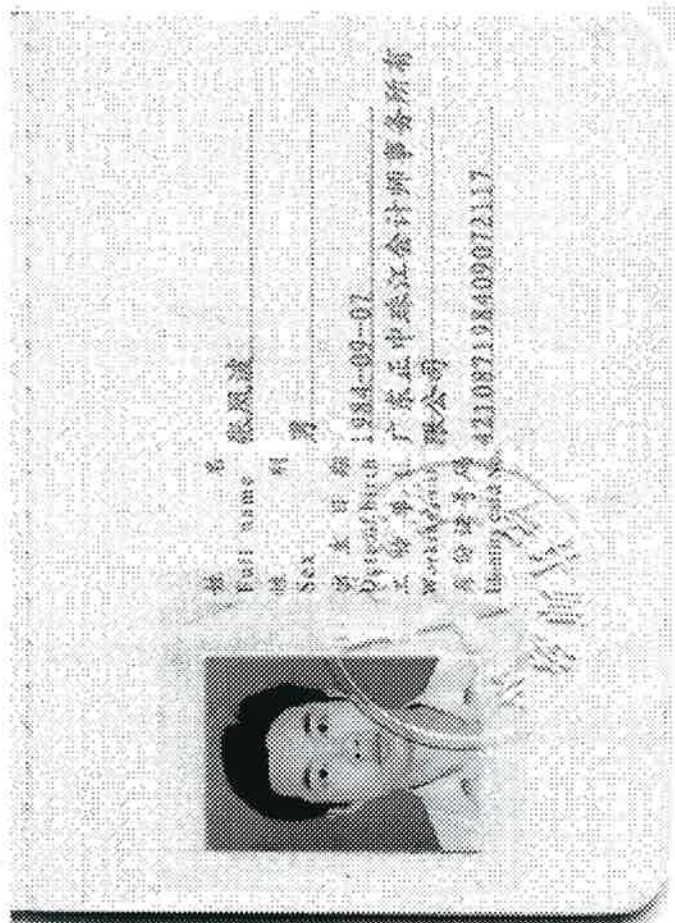 姓 名
Full name
性 别
Sex 男
出 生 日 期 1984-09-07
Date of birth
工 作 单 位 广东正中珠江会计师事务所有
Working unit 限公司
身 份 证 号 码 421087198409072117
Identity card No.